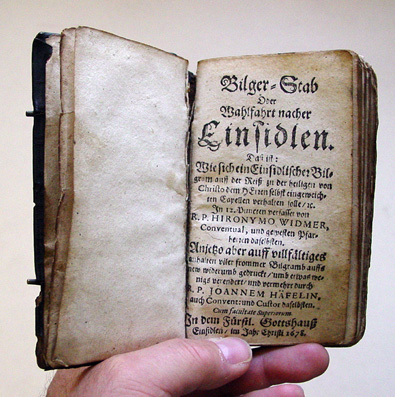 Bilger-Stab
Oder
Wahlfahrt nacher
Einsidlen.
Das ist:
Wie sich ein Einsidlischer Bil-
gram auff der Reiß zu der heiligen von
Christo dem HErren selbst eingeweich-
ten Capellen verhalten solle / ꝛc.
In 12. Puncten verfasset von
R. P. HIRONYMO WIDMER,
Conventual, und gewesten Pfar-
herren daselbsten.
Anjetzo aber auff villfältiges
anhalten viler frommer Bilgramb auffs
new widerumb gedruckt / umb etwas we-
nigs verendert / und vermehrt durch
R. P. JOANNEM HÄFELIN,
auch Convent: und Custor daselbsten.
Cum facultate Superiorum.
In dem Fürstl. Gottshauß
Einsidlen / im Jahr Christi